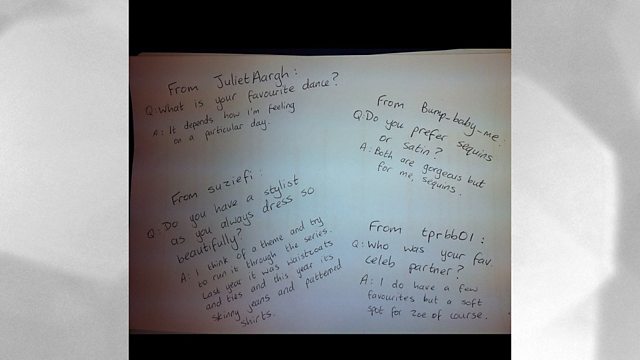 From JulietAargh:
Q: What is your favourite dance?
A: It depends how i'm feeling
on a particular day.
From Bump-baby-me:
Q: Do you prefer sequins
or satin?
A: Both are gorgeous but
for me, sequins.
From suziefi:
Q: Do you have a stylist
as you always dress so
beautifully?
A: I think of a theme and try
to run it through the series.
Last year it was waistcoats
and ties and this year its
skinny jeans and patterned
shirts.
From tprbb01:
Q: Who was your fav.
celeb partner?
A: I do have a few
favourites but a soft
spot for Zoe of course.